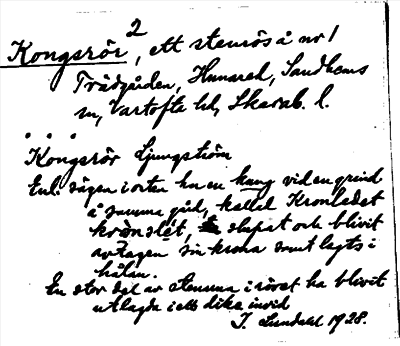 Kongsrör 2, ett stenrös å nr 1
Trädgården, Hunared, Sandhems
sn, Vartofte hd, Skarab. l.
Kongsrör Ljungström
Enl. sägen i orten ha en kung vid en grind
å samma gård, kallad Kronledet
kronslet, slupat och blivit
avtagen sin krona samt lagts i
hålan.
En stor del av stenarna i röset ha blivit
utlagda i ett dike invid
J. Lundahl 1928.